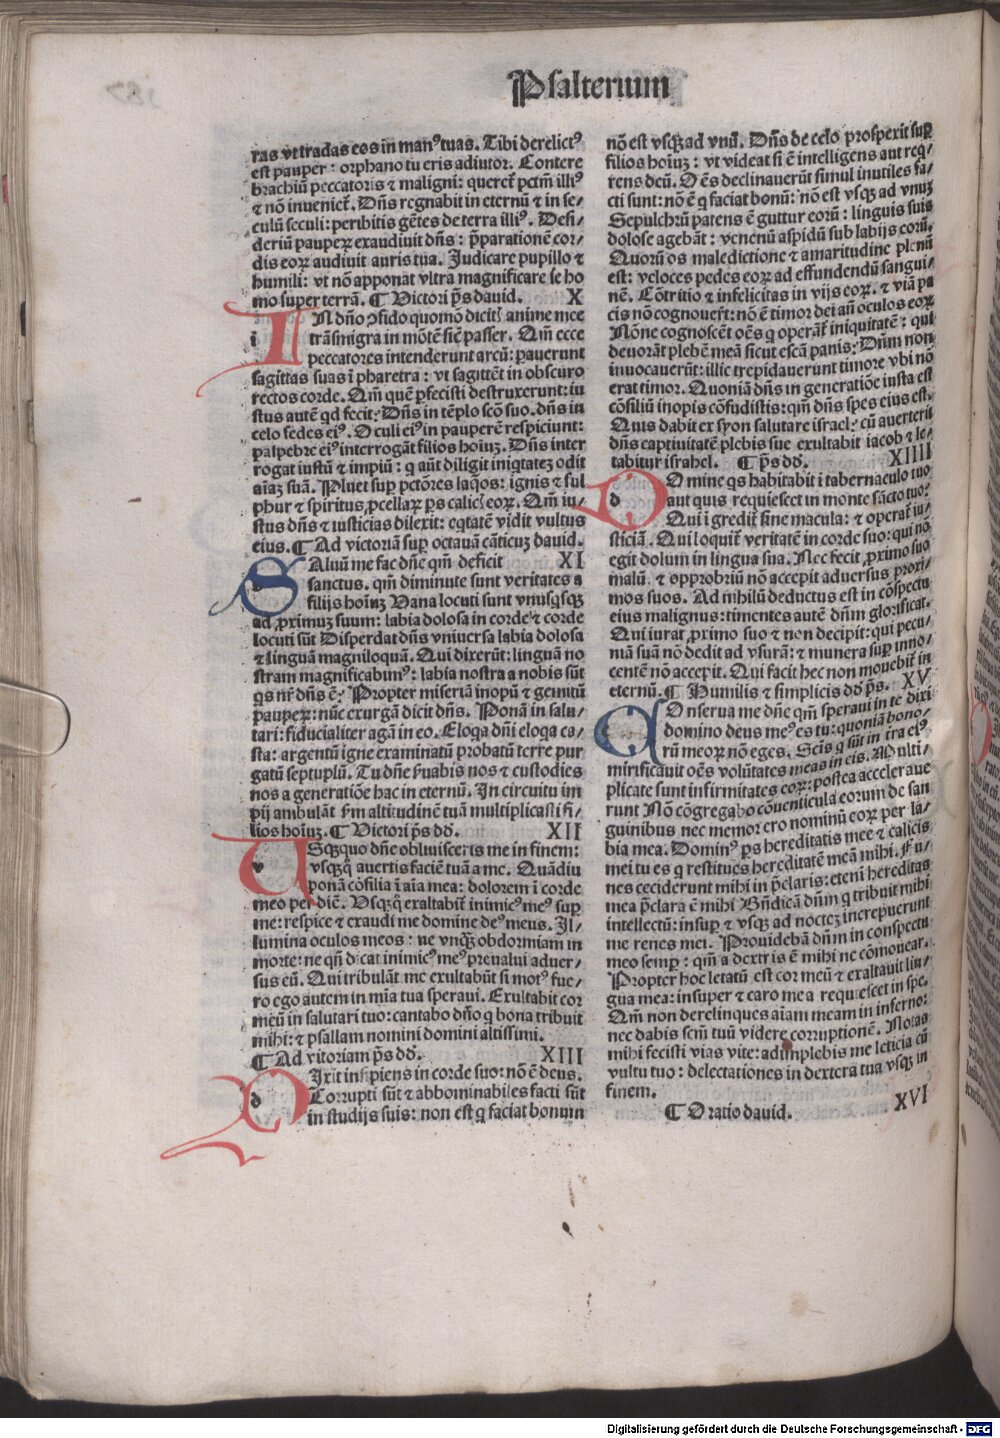 Psalterium
ras vt tradas eos in manꝰ tuas. Tibi derelictꝰ
est pauper: orphano tu eris adiutor. Contere
brachiū peccatoris ⁊ maligni: queret̄ pctm̄ illiꝰ
⁊ nō inueniet̄. Dn̄s regnabit in eternū ⁊ in se/
culū seculi: peribitis gētes de terra illiꝰ. Desi/
deriū pauperꝝ exaudiuit dn̄s: p̄parationē cor/
dis eorꝝ audiuit auris tua. Judicare pupillo ⁊
humili: vt nō apponat vltra magnificare se ho
mo super terrā. ¶ Victori ps̄ dauid. X
IN dn̄o ꝯfido quomō dicitꝭ anime mee
trāsmigra in mōtē sic̄ passer. Qm̄ ecce
peccatores intenderunt arcū: pauerunt
sagittas suas ī pharetra: vt sagittēt in obscuro
rectos corde. Qm̄ que ꝑfecisti destruxerunt: iu
stus autē qd fecit: Dn̄s in tēplo scō suo. dn̄s in
celo sedes eiꝰ. Oculi eiꝰ in pauperē respiciunt:
palpebre eiꝰ interrogāt filios hoīuꝫ. Dn̄s inter
rogat iustū ⁊ impiū: q aūt diligit iniqtateꝫ odit
aīaꝫ suā. Pluet suꝑ pctōres laqos: ignis ⁊ sul
phur ⁊ spiritus ꝓcellaꝝ ꝑs calicꝭ eoꝝ. Qm̄ iu/
stus dn̄s ⁊ iusticias dilexit: eqtatē vidit vultus
eius. ¶ Ad victoriā suꝑ octauā cāticuꝫ dauid.
SAluū me fac dn̄e qm̄ deficit XI
sanctus. qm̄ diminute sunt veritates a
filijs hoīuꝫ Uana locuti sunt vnusqsqꝫ
ad ꝓximuꝫ suum: labia dolosa in corde ⁊ corde
locuti sūt Disperdat dn̄s vniuersa labia dolosa
⁊ linguā magniloquā. Qui dixerūt: linguā no
stram magnificabimꝰ: labia nostra a nobis sūt
qs nr̄ dn̄s ē: Propter miseriā inopū ⁊ gemitū
pauperꝝ: nūc exurgā dicit dn̄s. Ponā in salu/
tari: fiducialiter agā in eo. Eloqa dn̄i eloqa ca/
sta: argentū igne examinatū probatū terre pur
gatū septuplū. Tu dn̄e ẜuabis nos ⁊ custodies
nos a generatiōe hac in eternū. In circuitu im
pij ambulāt ẜm altitudinē tuā multiplicasti fi/
lios hoīuꝫ. ¶ Victori ps̄ dd̄. XII
USqꝫquo dn̄e obliuisceris me in finem:
vsqꝫqꝗ auertis faciē tuā a me. Quādiu
ponā cōsilia ī aīa mea: dolorem ī corde
meo per diē. Usqꝫqꝗ exaltabit̄ inimicꝰ meꝰ suꝑ
me: respice ⁊ exaudi me domine deꝰ meus. Il/
lumina oculos meos: ne vnqꝫ obdormiam in
morte: ne qn̄ dicat inimicꝰ meꝰ preualui aduer/
sus eū. Qui tribulāt me exultabūt si motꝰ fue/
ro ego autem in mīa tua speraui. Exultabit cor
meū in salutari tuo: cantabo dn̄o q bona tribuit
mihi: ⁊ psallam nomini domini altissimi.
¶ Ad vitoriam ps̄ dd̄. XIII
DIxit insipiens in corde suo: nō ē deus.
Corrupti sūt ⁊ abbominabiles facti sūt
in studijs suis: non est q faciat bonum
nō est vsqꝫ ad vnū. Dn̄s de celo prospexit suꝑ
filios hoīuꝫ: vt videat si ē intelligens aut req/
rens deū. Oēs declinauerūt simul inutiles fa/
cti sunt: nō ē q faciat bonū: nō est vsqꝫ ad vnuꝫ
Sepulchrū patens ē guttur eorū: linguis suis
dolose agebāt: venenū aspidū sub labijs eorū.
Quorū os maledictione ⁊ amaritudine plenū
est: veloces pedes eoꝝ ad effundendū sangui/
nē. Cōtritio ⁊ infelicitas in vijs eoꝝ. ⁊ viā pa
cis nō cognouert̄: nō ē timor dei an̄ oculos eoꝝ
Nōne cognoscēt oēs q operāt̄ iniquitatē: qui
deuorāt plebē meā sicut escā panis: Dn̄m non
inuocauerūt: illic trepidauerunt timore vbi nō
erat timor. Quoniā dn̄s in generatiōe iusta est
cōsiliū inopis cōfudistis: qm̄ dn̄s spes eius est.
Quis dabit ex syon salutare israel: cū auerterit
dn̄s captiuitatē plebis sue exultabit iacob ⁊ le/
tabitur israhel. ¶ ps̄ dd̄. XIIII
DOmine qs habitabit ī tabernaculo tuo
aut quis requiescet in monte sācto tuo:
Qui īgredit̄ sine macula: ⁊ operat̄ iu/
sticiā. Qui loquit̄ veritatē in corde suo: qui nō
egit dolum in lingua sua. Nec fecit ꝓximo suo
malū. ⁊ opprobriū nō accepit aduersus proxi/
mos suos. Ad nihilū deductus est in cōspectu
eius malignus: timentes autē dn̄m glorificat.
Qui iurat ꝓximo suo ⁊ non decipit: qui pecu/
niā suā nō dedit ad vsurā: ⁊ munera suꝑ inno/
centē nō accepit. Qui facit hec non mouebit̄ in
eternū. ¶ Humilis ⁊ simplicis dd̄ ps̄. XV
COnserua me dn̄e qm̄ speraui in te dixi
domino deus meꝰ es tu: quoniā bono/
rū meorꝝ nō eges. Scis q sūt in tra eiꝰ
mirificauit oēs volūtates meas in eis. Multi/
plicate sunt infirmitates eorꝝ: postea accelerauе
runt Nō cōgregabo cōuenticula eorum de san
guinibus nec memor ero nominū eorꝝ per la/
bia mea. Dominꝰ ꝑs hereditatis mee ⁊ calicis
mei tu es q restitues hereditatē meā mihi. Fu/
nes ceciderunt mihi in p̄claris: eteni hereditas
mea p̄clara ē mihi Bn̄dicā dn̄m q tribuit mihi
intellectū: insuꝑ ⁊ vsqꝫ ad nocteꝫ increpuerunt
me renes mei. Prouidebā dn̄m in conspectu
meo semꝑ: qm̄ a dextris ē mihi ne cōmouear.
Propter hoc letatū est cor meū ⁊ exaltauit lin/
gua mea: insuper ⁊ caro mea requiescet in spe.
Qm̄ non derelinques aīam meam in inferno:
nec dabis scm̄ tuū videre corruptionē. Notas
mihi fecisti vias vite: adimplebis me leticia cū
vultu tuo: delectationes in dextera tua vsqꝫ in
finem.
¶ Oratio dauid. XVI
Digitalisierung gefördert durch die Deutsche Forschungsgemeinschaft - DFG